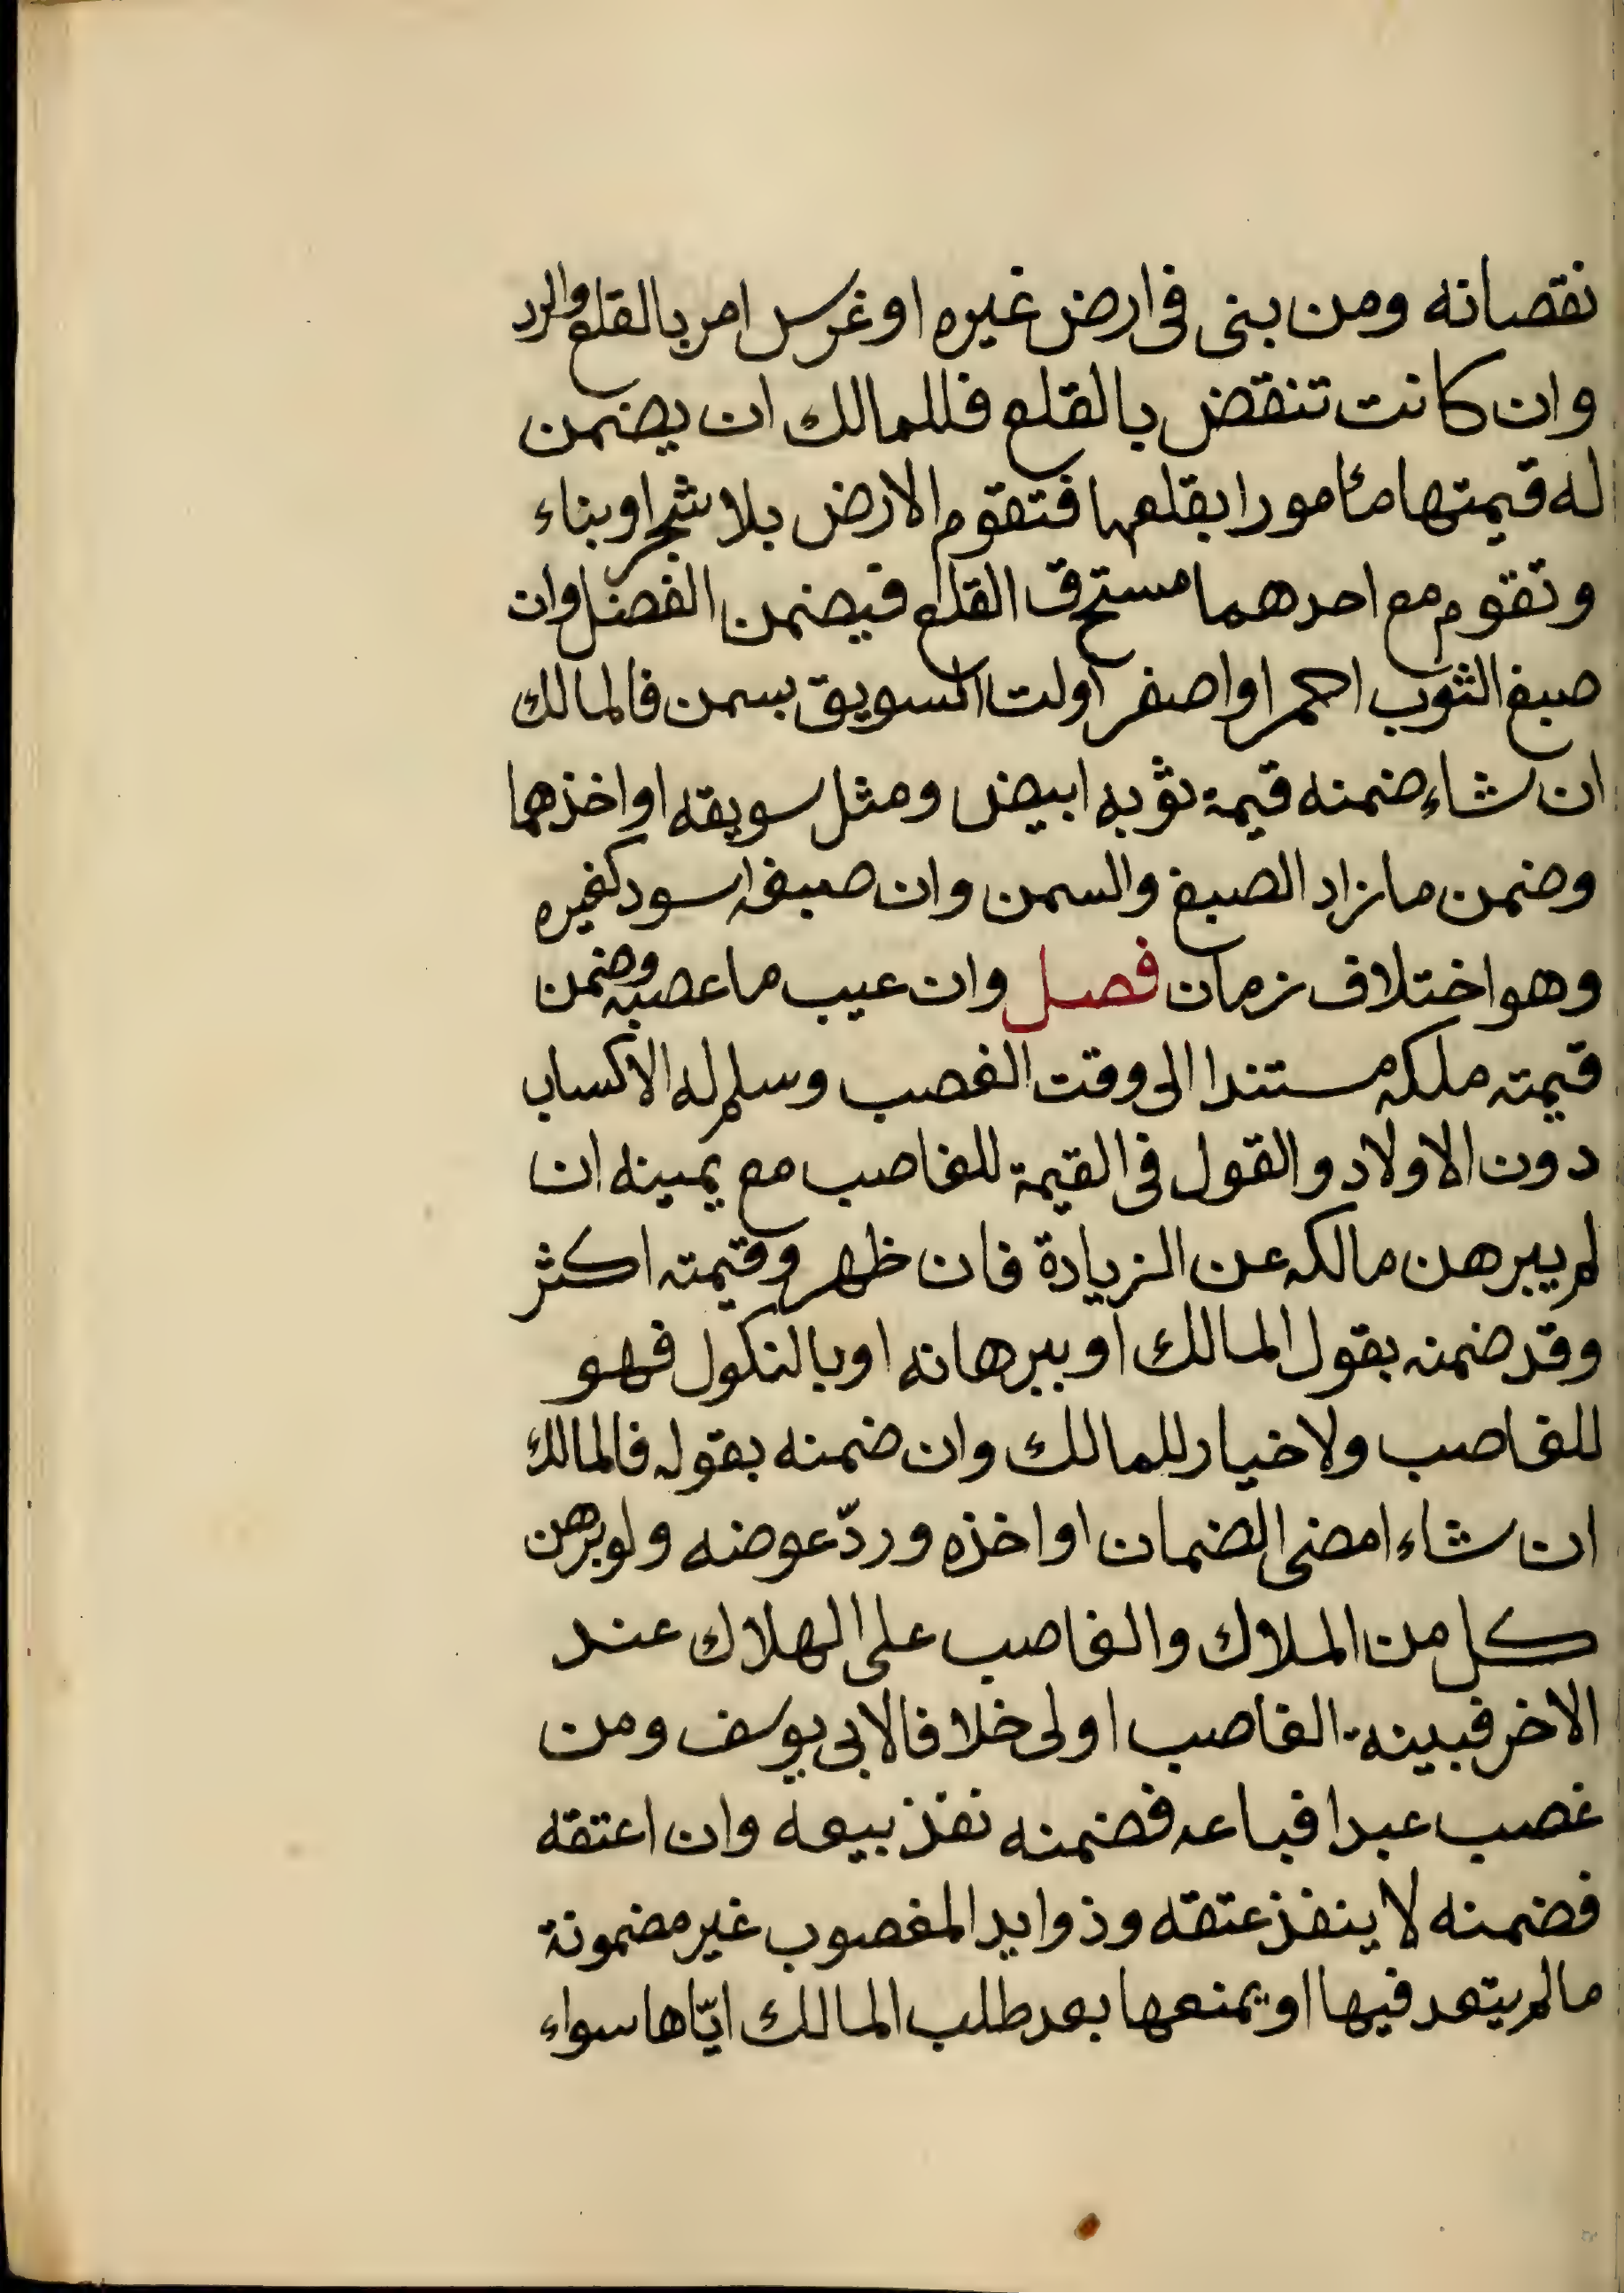 نقصانه ومن بنى فى ارض غيره او غرس امر بالقلع والرد
وان كانت تنقض بالقلع فللمالك ان يضمن
له قيمتها مئامورا بقلعها فتقوم الارض بلا شجر او بناء
وتقوم مع احدهما مستحق القلع فيضمن الفضل وان
صبغ الثوب احمر او اصفر اولت السويق بسمن فالمالك
ان شاء ضمنه قيمة ثوبه ابيض ومثل سويقه او اخذهما
وضمن ما زاد الصبغ والسمن وان صبغه اسود كغيره
وهو اختلاف زمان فصل وان عيب ما غصبه وضمن
قيمته ملكه مستندا الى وقت الغصب وسلم له الاكساب
دون الاولاد والقول فى القيمة للغاصب مع يمينه ان
لم يبرهن مالكه عن الزيادة فان ظهر وقيمته اكثر
وقد ضمنه بقول المالك او ببرهانه او بالنكول فهو
للغاصب ولا خيار للمالك وان ضمنه بقوله فالمالك
ان شاء امضى الضمان او اخذه وردّ عوضه ولو برهن
كل من الملاك والغاصب على الهلاك عند
الاخر فبينة الغاصب اولى خلافا لابى يوسف ومن
غصب عبدا فباعه فضمنه نفذ بيعه وان اعتقه
فضمنه لا ينفذ عتقه وذوايد المغصوب غير مضمونة
مالم يتعد فيها او يمنعها بعد طلب المالك ايّاها سواء